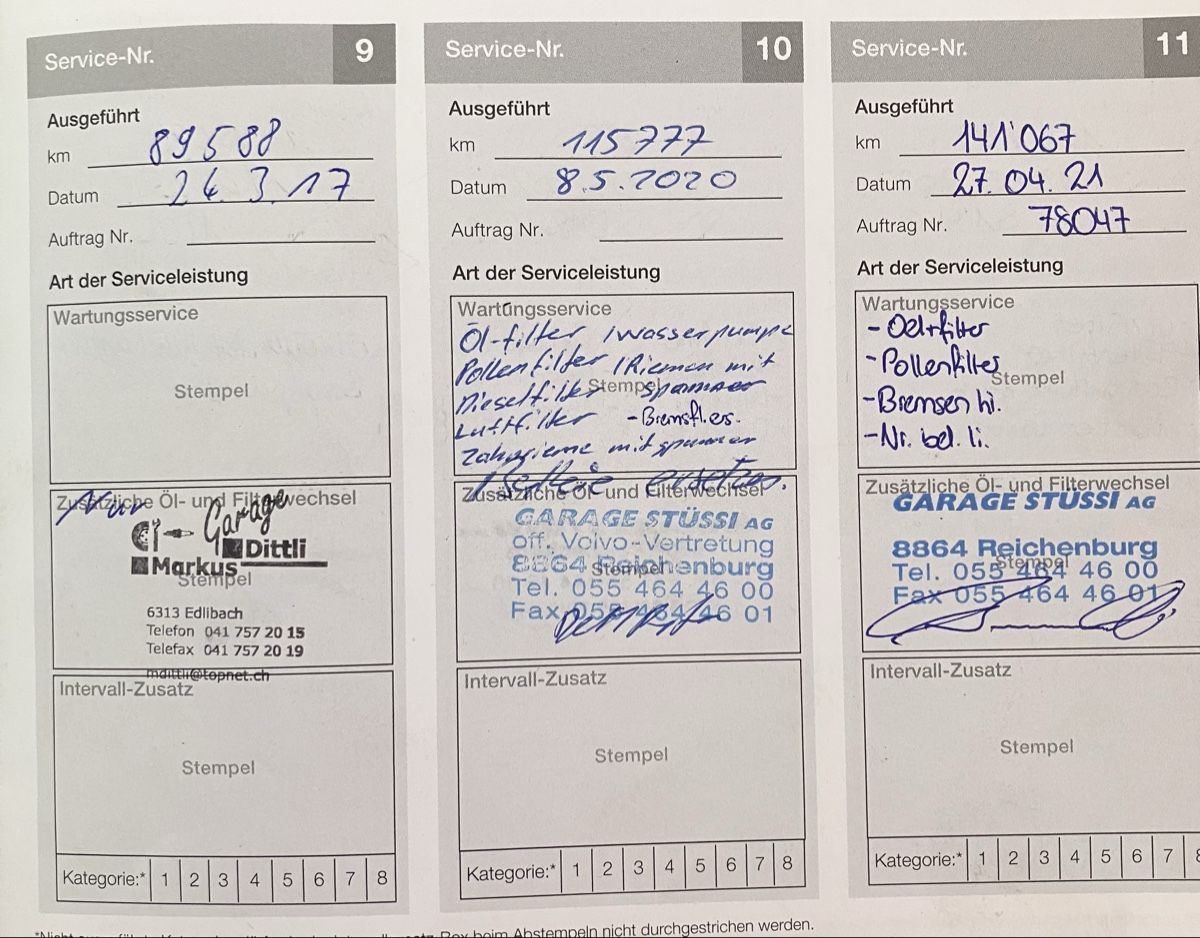 Service-Nr. 9
Ausgeführt
km 89588
Datum 24.3.17
Auftrag Nr.
Art der Serviceleistung
Wartungsservice
Stempel
Zusätzliche Öl- und Filterwechsel
Garage
Markus Dittli
Stempel
6313 Edlibach
Telefon 041 757 20 15
Telefax 041 757 20 19
mdittli@topnet.ch
Intervall-Zusatz
Stempel
Kategorie:* 1 2 3 4 5 6 7 8
Service-Nr. 10
Ausgeführt
km 115777
Datum 8.5.2020
Auftrag Nr.
Art der Serviceleistung
Wartungsservice
Öl-filter / Wasserpumpe
Pollenfilter / Riemen mit
Dieselfilter Stempel spanner
Luftfilter - Bremsfl. ers.
Zahnrieme mit spanner
ersetzen.
Zusätzliche Öl- und Filterwechsel
GARAGE STÜSSI AG
off. Volvo-Vertretung
8864 Reichenburg
Stempel
Tel. 055 464 46 00
Fax 055 464 46 01
Intervall-Zusatz
Stempel
Kategorie:* 1 2 3 4 5 6 7 8
Service-Nr. 11
Ausgeführt
km 141'067
Datum 27.04.21
Auftrag Nr. 78047
Art der Serviceleistung
Wartungsservice
- Oel+filter
- Pollenfilter
Stempel
- Bremsen hi.
- Nr. bel. li.
Zusätzliche Öl- und Filterwechsel
GARAGE STÜSSI AG
8864 Reichenburg
Stempel
Tel. 055 464 46 00
Fax 055 464 46 01
Intervall-Zusatz
Stempel
Kategorie:* 1 2 3 4 5 6 7
beim Abstempeln nicht durchgestrichen werden.